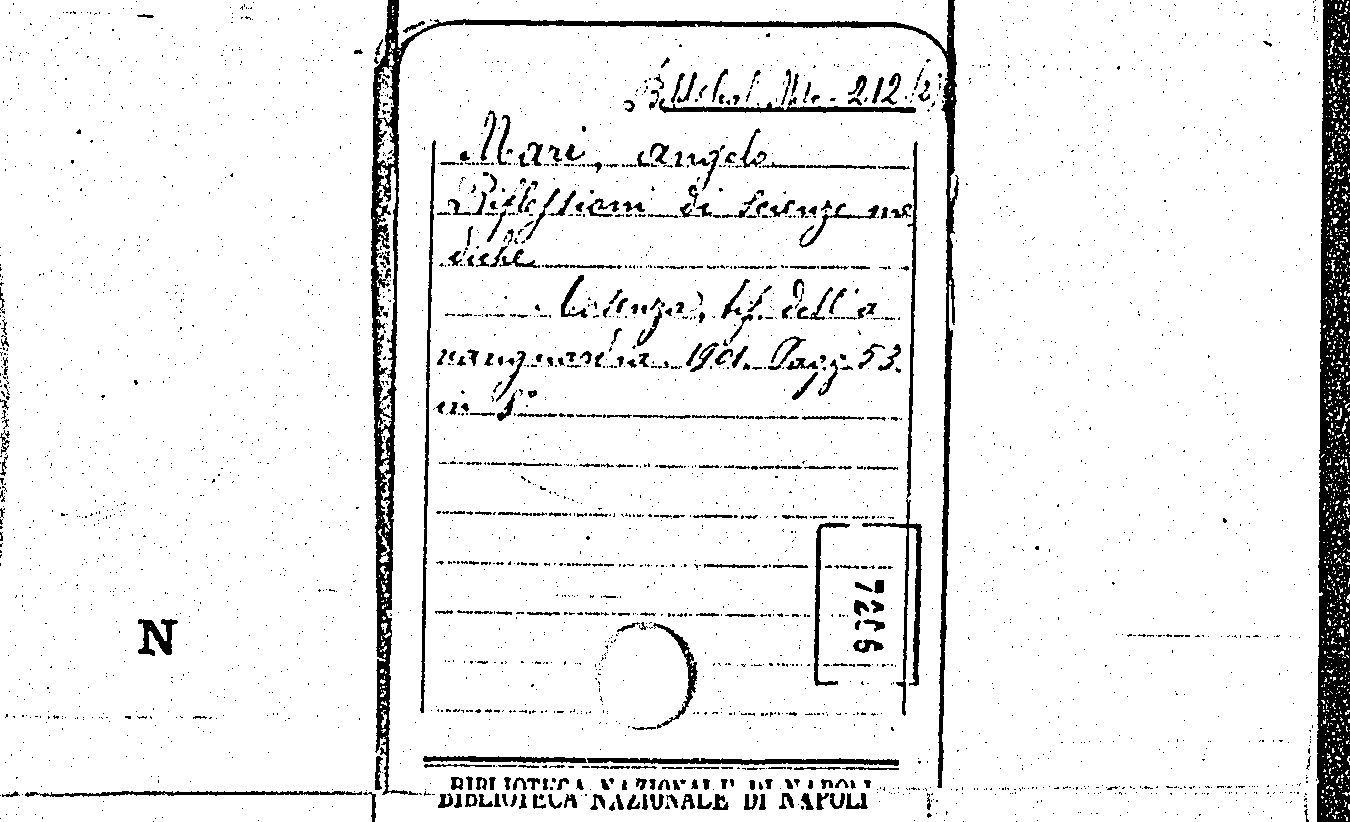 212 (2)
Mari, Angelo
Riflessioni di scienze me
diche
Cosenza, tip. dell'a
vanguardia. 1901. Pagg. 53.
in 8°
N
BIBLIOTECA NAZIONALE DI NAPOLI
BIBLIOTECA NAZIONALE DI NAPOLI